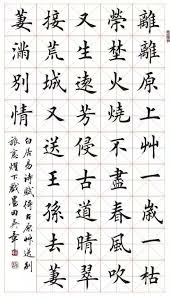 離離原上艸一歲一枯
榮埜火燒不盡春風吹
又生遠芳侵古道晴翠
接荒城又送王孫去萋
萋滿別情
白居易詩賦得古原艸送別
田英章